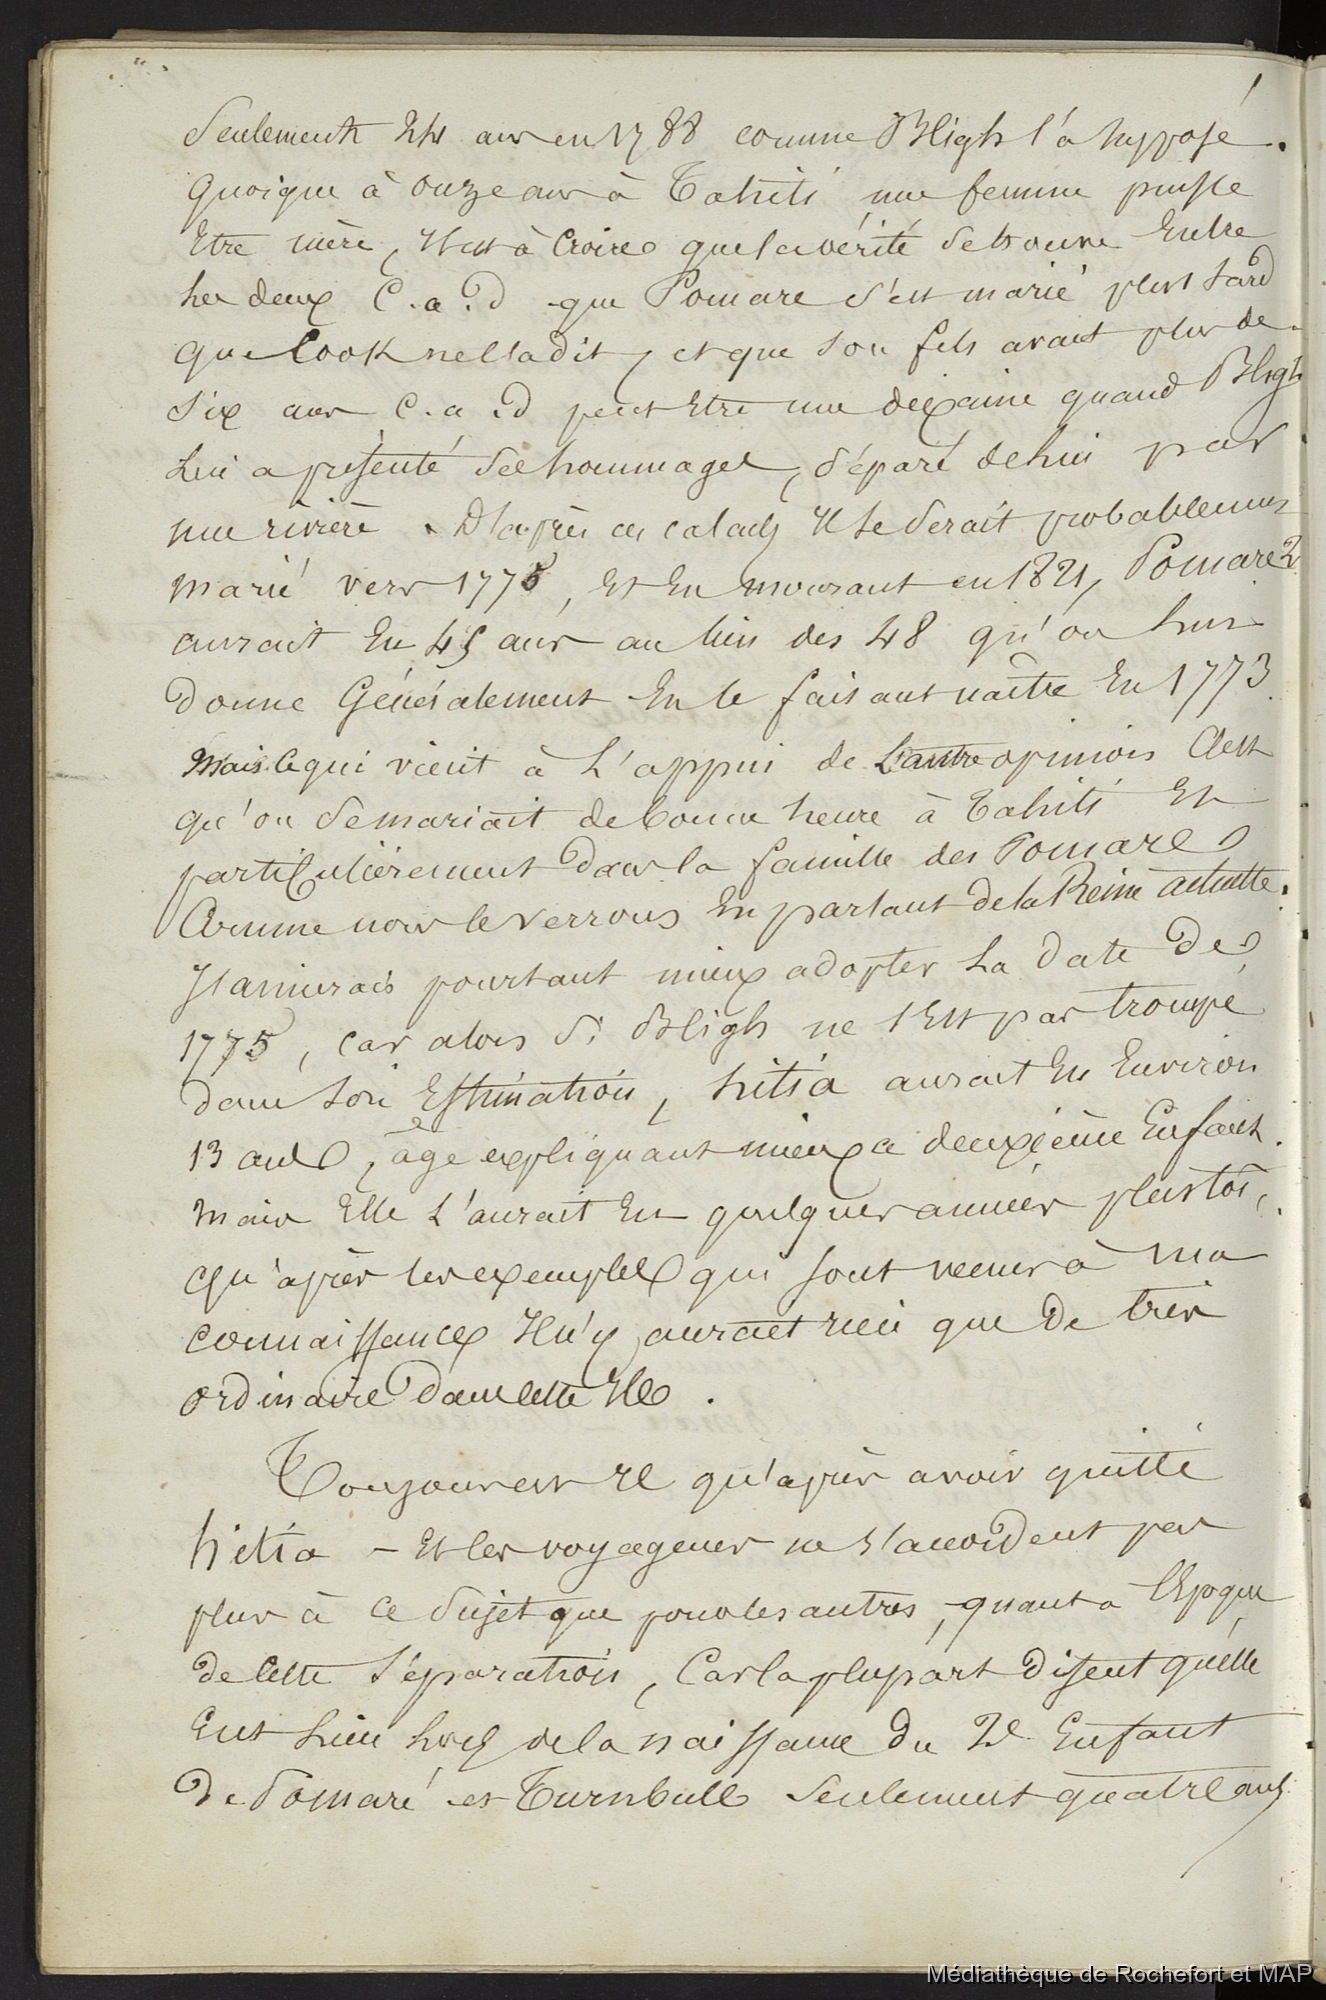 Seulement 24 ans en 1788 comme Bligh l'a supposé.
Quoique à onze ans à Tahiti une femme puisse
Etre mère, Il est à croire que la vérité se trouve Entre
les deux c.a.d que Pomare s'est marié plus tard
que Cook ne l'a dit, et que son fils avait plus de
six ans c.a.d peut Etre une dixaine quand Bligh
lui a présenté ses hommages, séparé de lui par
une rivière. D'après ces calculs Il se serait probablement
marié vers 1775, Et En mourant en 1821, Pomare 2
aurait Eu 45 ans au lieu des 48 qu'on lui
donne Généralement En le faisant naître En 1773.
Mais ce qui vient à l'appui de l'autre opinion C'est
qu'on se mariait de bonne heure à Tahiti Et
particulièrement dans la famille des Pomare
Comme nous le verrons En parlant de la Reine actuelle.
J'aimerais pourtant mieux adopter la date de
1775, car alors si Bligh ne s'Est pas trompé
dans son Estimation, hitia aurait Eu Environ
13 ans, âge expliquant mieux ce deuxième Enfant.
mais Elle l'aurait Eu quelques années plustôt,
qu'après les exemples qui sont venus à ma
connaissance Il n'y aurait rien que de très
ordinaire dans cette Ile.
Toujours est Il qu'après avoir quitté
hitia - Et les voyageurs ne s'accordent pas
plus à ce sujet que pour les autres, quant à l'Epoque
de cette séparation, Car la plupart disent qu'elle
Eut lieu lors de la naissance du 2e Enfant
de Pomaré et Turnbull seulement quatre ans